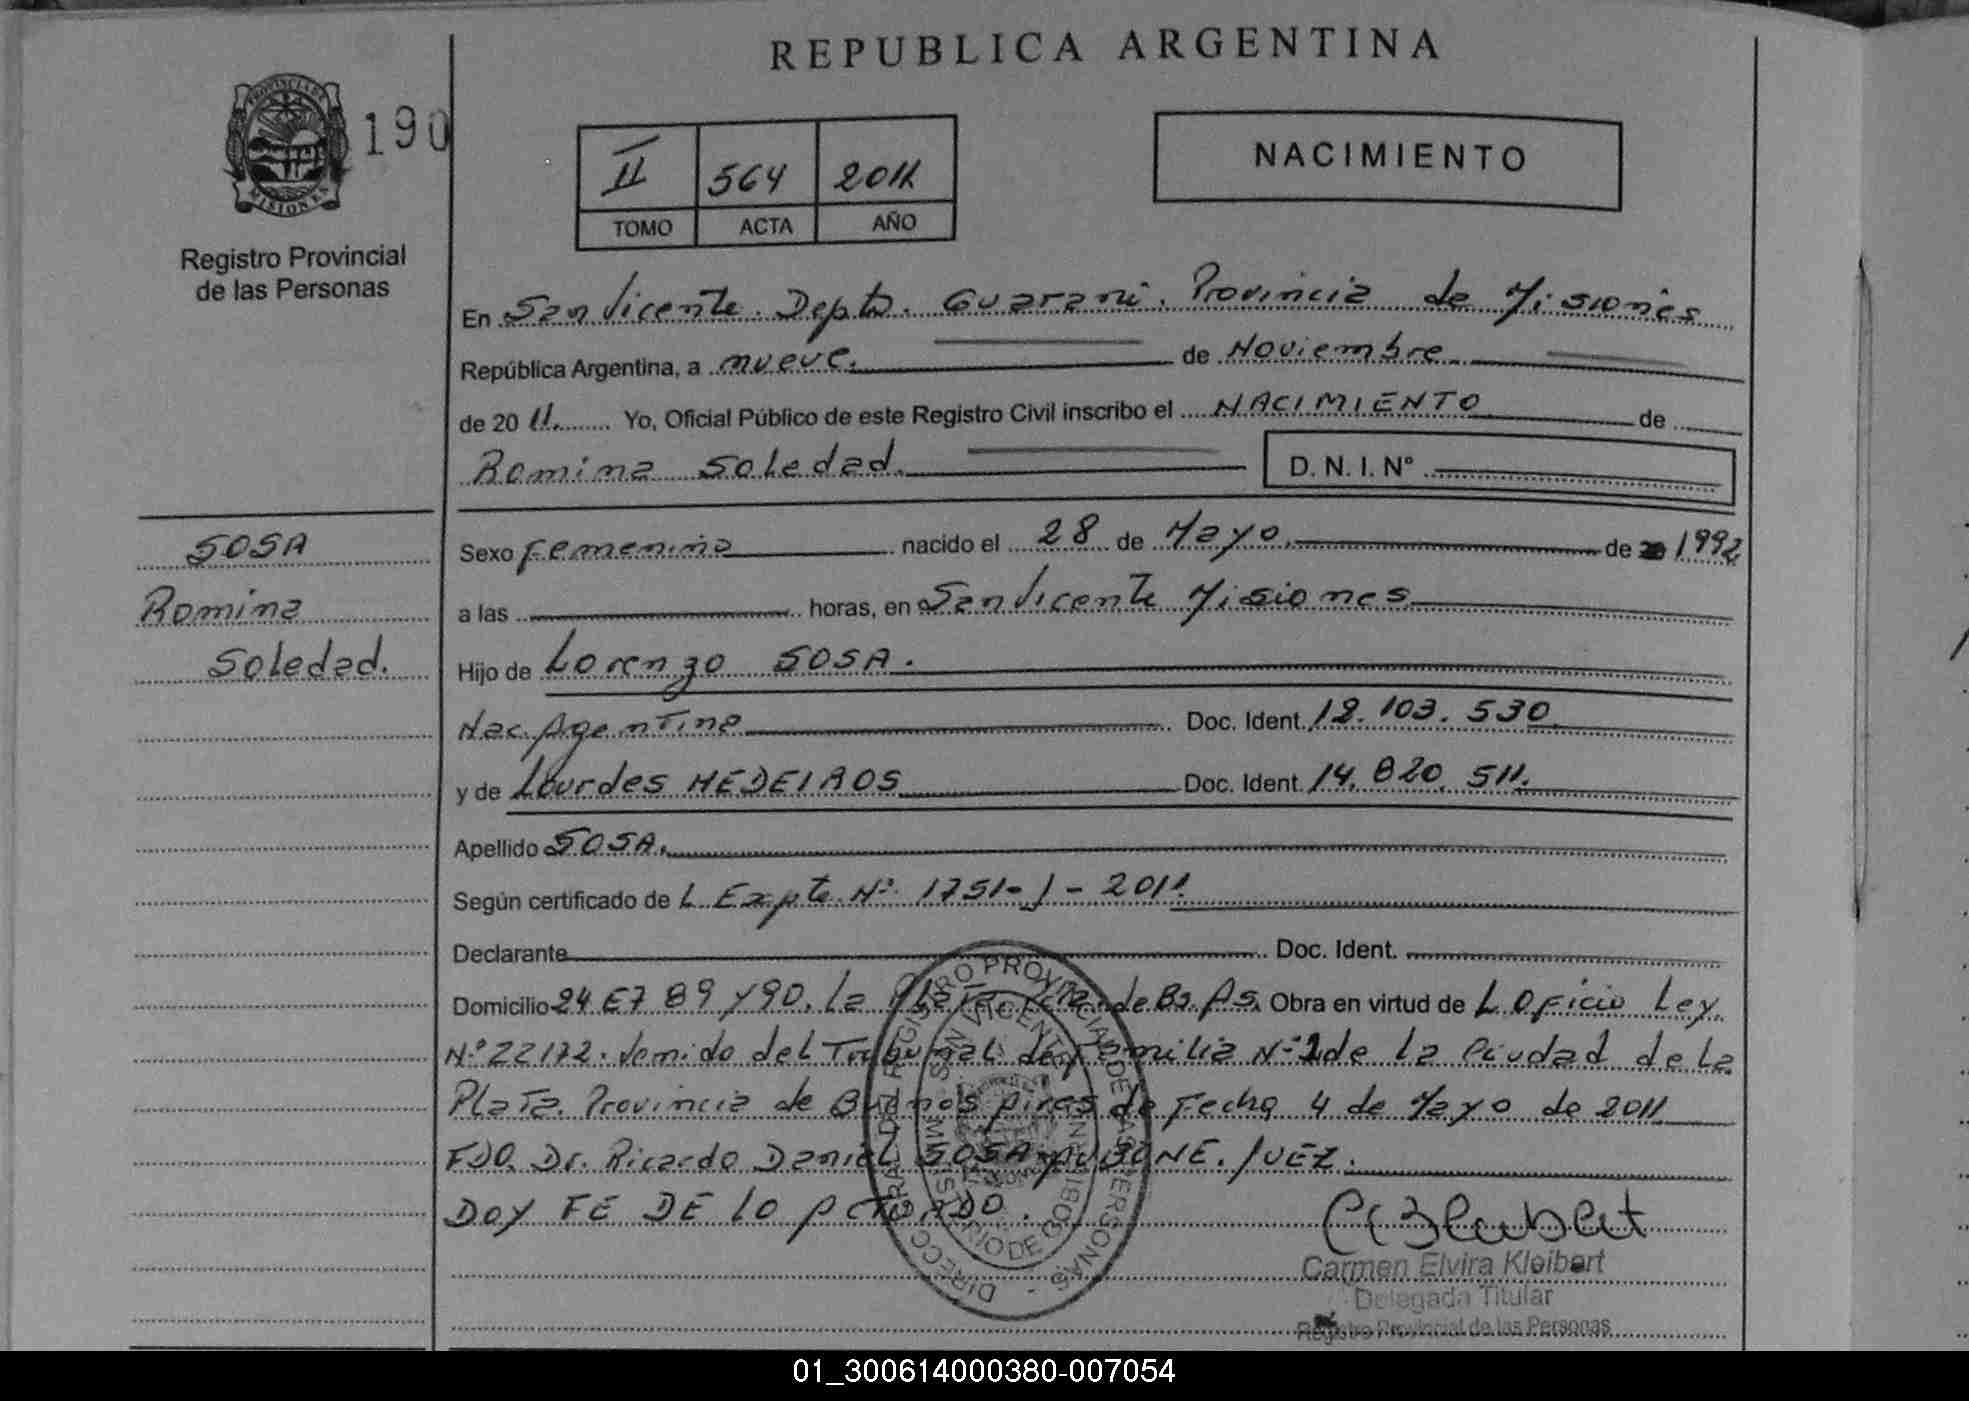 REPUBLICA ARGENTINA
PROVINCIA DE MISIONES
190
II 564 2011
TOMO ACTA AÑO
NACIMIENTO
Registro Provincial
de las Personas
En San Vicente. Depto. Guarani. Provincia de Misiones
República Argentina, a nueve. de Noviembre
de 20 11. Yo, Oficial Público de este Registro Civil inscribo el NACIMIENTO de
Romina Soledad. D. N. I. N°
SOSA
Romina
Soledad.
Sexo femenino nacido el 28 de Mayo. de 1992
a las horas, en San Vicente Misiones
Hijo de Lorenzo SOSA.
Nac. Agentina Doc. Ident. 12.103.530
y de Lourdes MEDEIROS Doc. Ident. 14.820.511.
Apellido SOSA.
Según certificado de L Expte. N° 1751-J-2011
Declarante Doc. Ident.
Domicilio 24 E7 89 y 90. La Plata. de Bs. As. Obra en virtud de L Oficio Ley.
N° 22172. Venido del Tribunal de Familia N° 2 de la Ciudad de La
Plata. Provincia de Buenos Aires de Fecha 4 de Mayo de 2011
FDO. Dr. Ricardo Daniel SOSA JUEZ.
DOY FE DE LO ACTUADO.
DIRECC GRAL DE REGISTRO PROVINCIAL DE LAS PERSONAS
SAN VICENTE
MINISTERIO DE GOBIERNO
Carmen Elvira Kleibert
Delegada Titular
Registro Provincial de las Personas
01_300614000380-007054